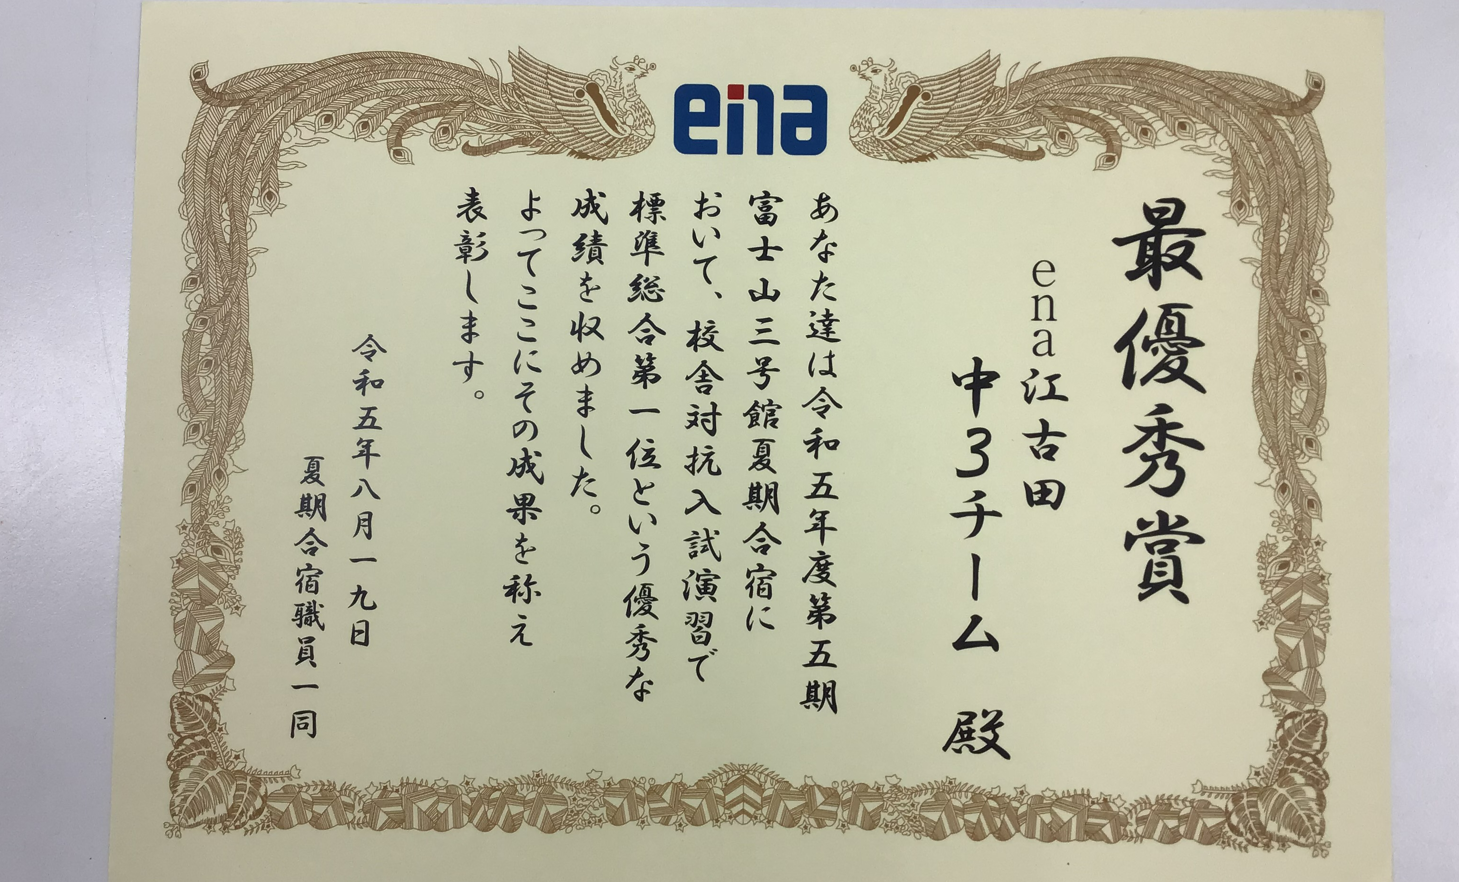 ena
最優秀賞
ena江古田
中3チーム 殿
あなた達は令和五年度第五期
富士山三号館夏期合宿に
おいて、校舎対抗入試演習で
標準総合第一位という優秀な
成績を収めました。
よってここにその成果を称え
表彰します。
令和五年八月一九日
夏期合宿職員一同